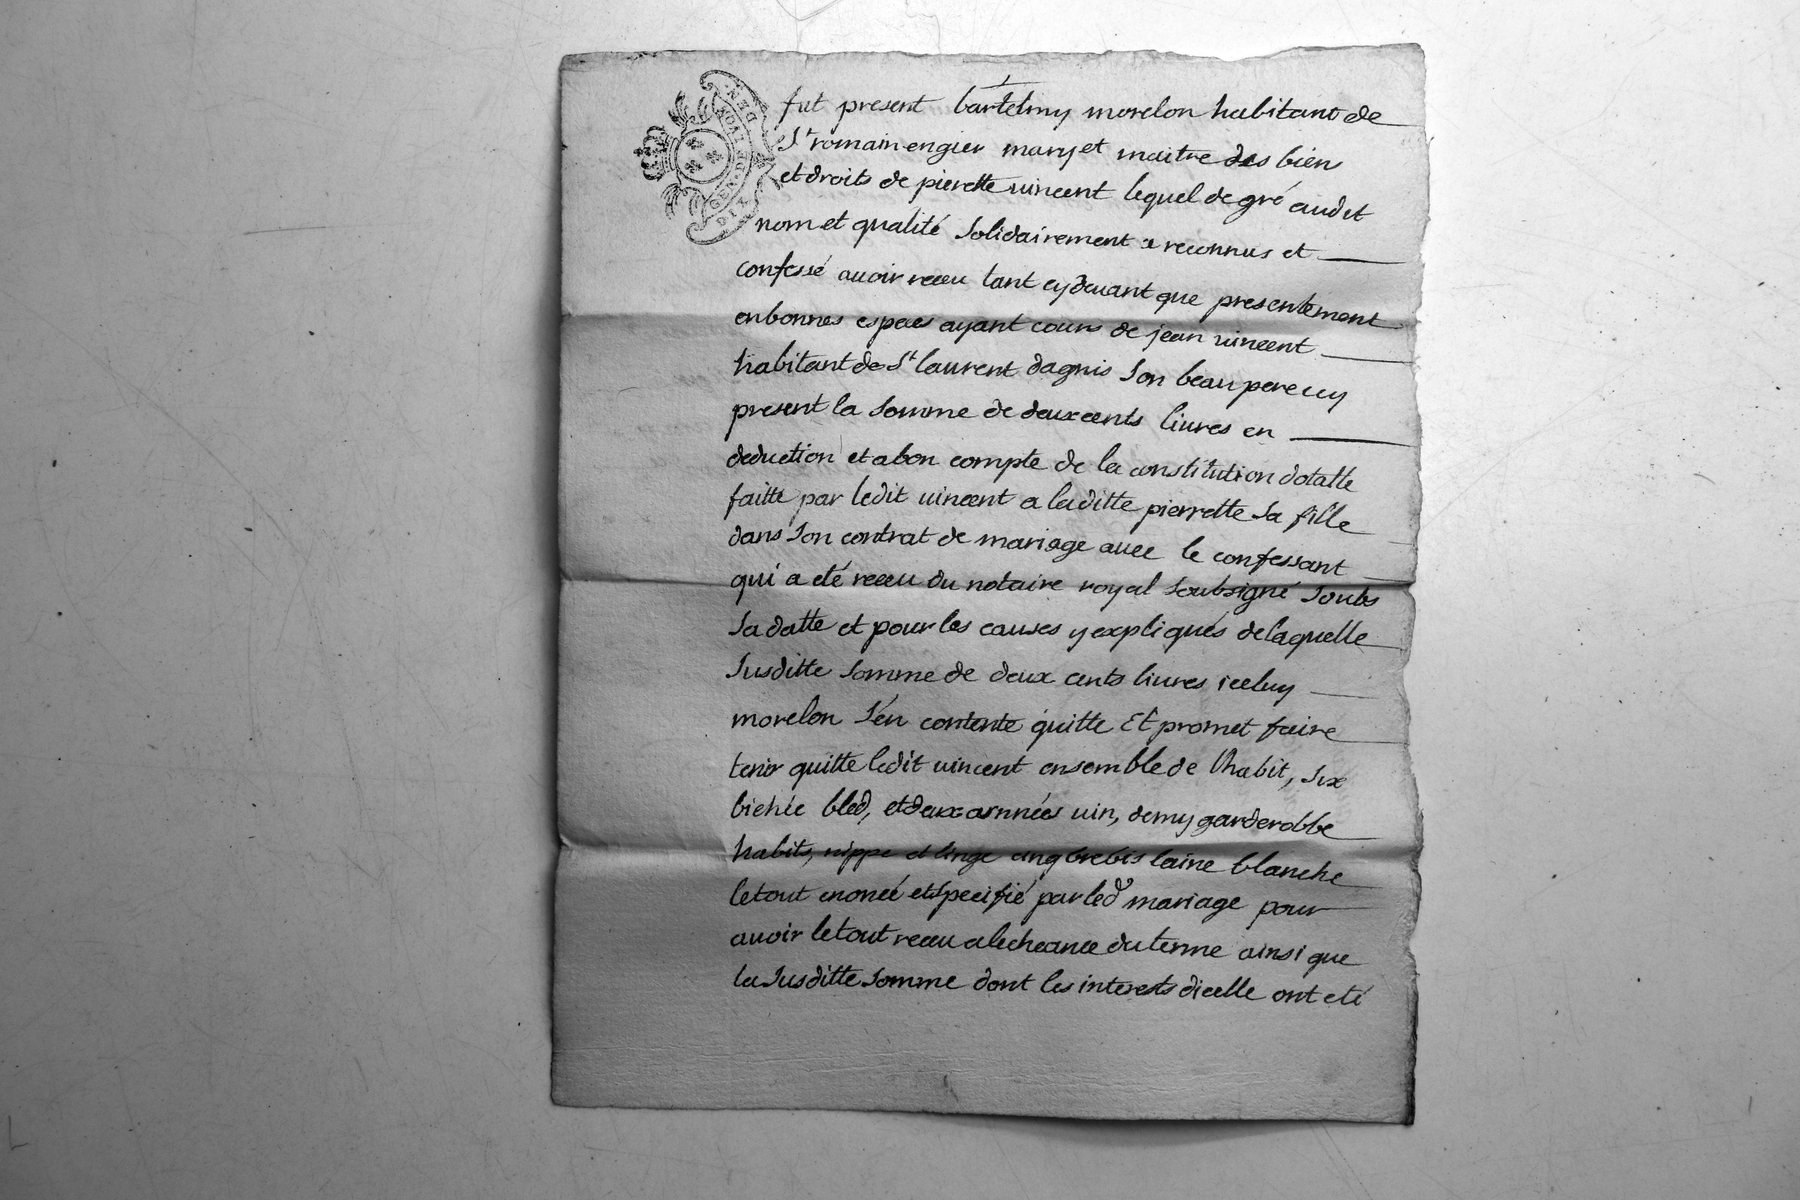 fut present bartelmy morelon habitant de
St romain en gier mary et maitre des bien
et droits de pierette vincent lequel de gré audit
nom et qualité solidairement a reconnus et
confessé auoir receu tant cy deuant que presentement
en bonnes espees ayant cours de jean vincent
habitant de St laurent dagnis son beau pere icy
present la somme de deux cents liures en
deduction et a bon compte de la constitution dotalle
faitte par ledit vincent a laditte pierrette sa fille
dans son contrat de mariage auec le confessant
qui a eté receu du notaire royal soubsigné soubs
sa datte et pour les causes y expliqués de laquelle
susditte somme de deux cents liures iceluy
morelon s'én contente quitte Et promet faire
tenir quitte ledit vincent ensemble de lhabit, six
bichée bled, et deux asnnées vin, demy garderobbe
habits, nippe et linge cinq brebis laine blanche
le tout enoncé et specifié par led. mariage pour
auoir le tout receu a lecheance du terme ainsi que
la susditte somme dont les interests dicelle ont eté